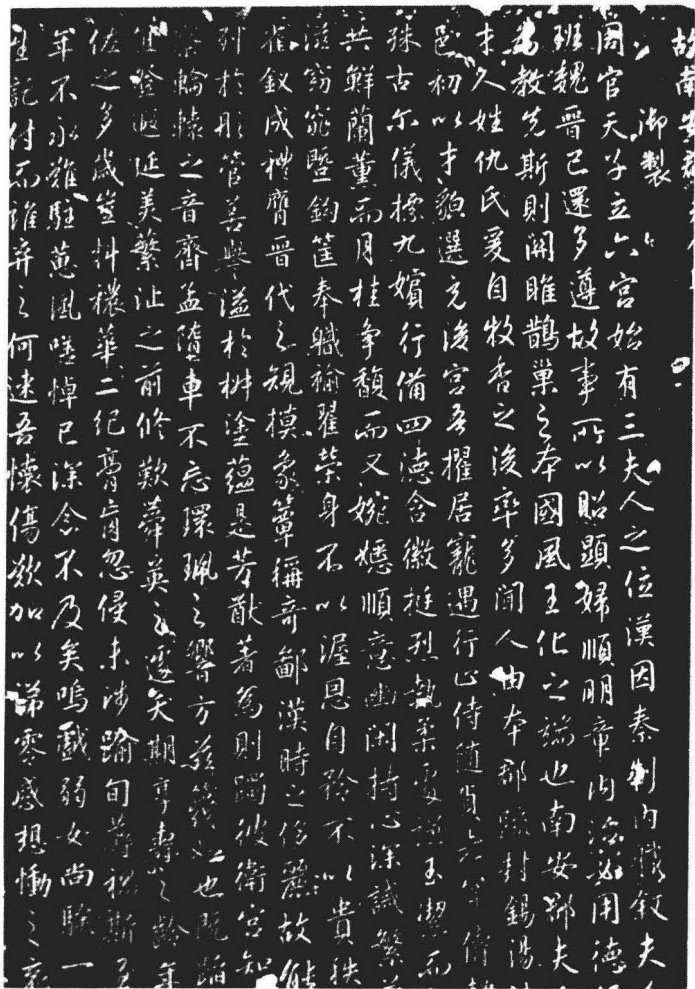 故南安郡
御製
周官天子立六宫始有三夫人之位漢因秦制内職叙夫人
班魏晋已還多遵故事所以昭顯婦順明章内治必用德
為教先斯則關雎鵲巢之本國風王化之端也南安郡夫
才人姓仇氏爰自牧香之後率多聞人由本郡疏封錫湯
邑初以才貌選充後宫吾擢居寵遇行止侍隨貞六年備
殊古尔儀摽九嬪行備四德含徽挺烈執柔處遜玉潔而
共鮮蘭薫而月桂争馥而又婉嫕順意幽閑持心深誡繁
滋窈窕暨鈞筐奉職褕翟榮身不以渥恩自矜不以貴秩
雀釵成禮齊晋代之規摸象簟稱奇鄙漢時之侈麗故能
列於彤管善譽溢於椒塗蘊是芳猷著爲則躅彼衛宫知
輪轅之音齊孟墮車不忘環珮之響方兹篾如也既踰
登遐延美繁沚之前修歎蕣英之遽矣期享壽之齡年
佐之多歲豈料穠華二紀膏肓忽侵未涉踰旬舜祝斯
年不永難駐蕙風嗟悼已深念不及矣嗚戲弱女尚騃一
生託付而誰弃之何速吾懷傷歎加以涕零感想慟之哀